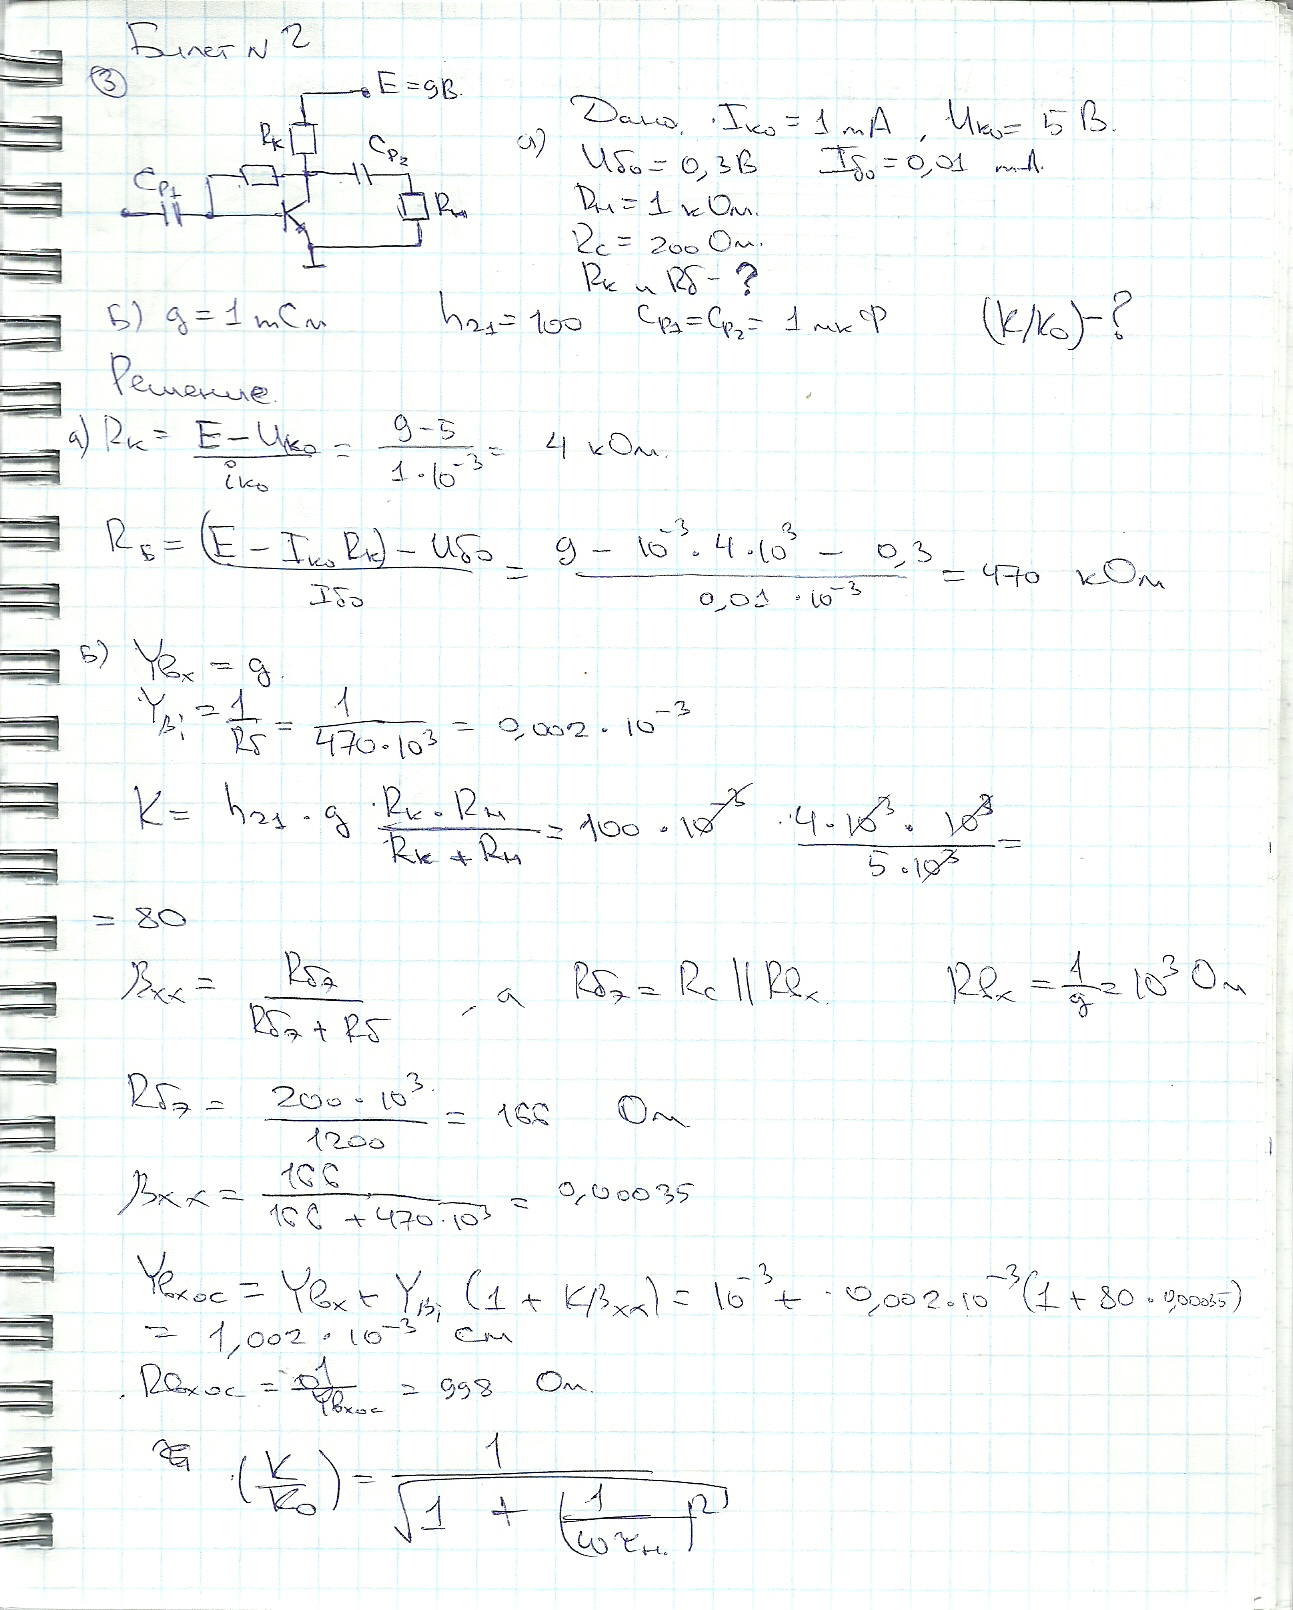 Билет N 2
③
E = 9В.
Rк
Cp₂
Cp₁
Rн
Дано, Iко = 1 mA, Uко = 5 В.
а)
Uбо = 0,3В Iбо = 0,01 mA.
Rн = 1 кОм.
Rc = 200 Ом.
Rк и Rб - ?
Б) g = 1 mСм h₂₁ = 100 Cp₁ = Cp₂ = 1 мкФ (K/K₀) - ?
Решение.
а) Rк = (E - Uко)/iко = (9 - 5)/(1·10⁻³) = 4 кОм.
RБ = ((E - Iко Rк) - Uбо)/Iбо = (9 - 10⁻³·4·10³ - 0,3)/(0,01·10⁻³) = 470 кОм
Б) Yвх = g.
Yβi = 1/Rб = 1/(470·10³) = 0,002·10⁻³
K = h₂₁·g (Rк·Rн)/(Rк + Rн) = 100·10⁻³ · (4·10³·10³)/(5·10³) =
= 80
βхх = Rбэ/(Rбэ + Rб), а Rбэ = Rc || Rвх. Rвх = 1/g = 10³ Ом
Rбэ = (200·10³)/1200 = 166 Ом
βхх = 166/(166 + 470·10³) = 0,00035
Yвхос = Yвх + Yβi (1 + Kβхх) = 10⁻³ + 0,002·10⁻³(1 + 80·0,00035)
= 1,002·10⁻³ См
Rвхос = 1/Yвхос = 998 Ом.
(K/K₀) = 1/√(1 + (1/(ωτн.))²)